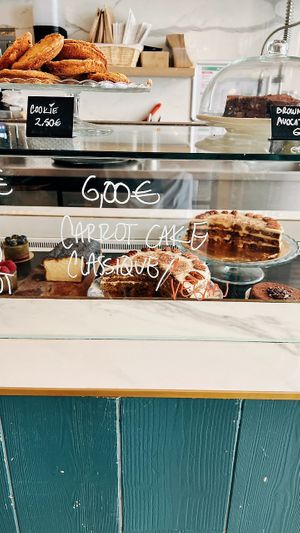 COOKIE
2,50€
BROWN
AVOCAT
6
€
6,00€
CARROT CAKE
CLASSIQUE/
OT